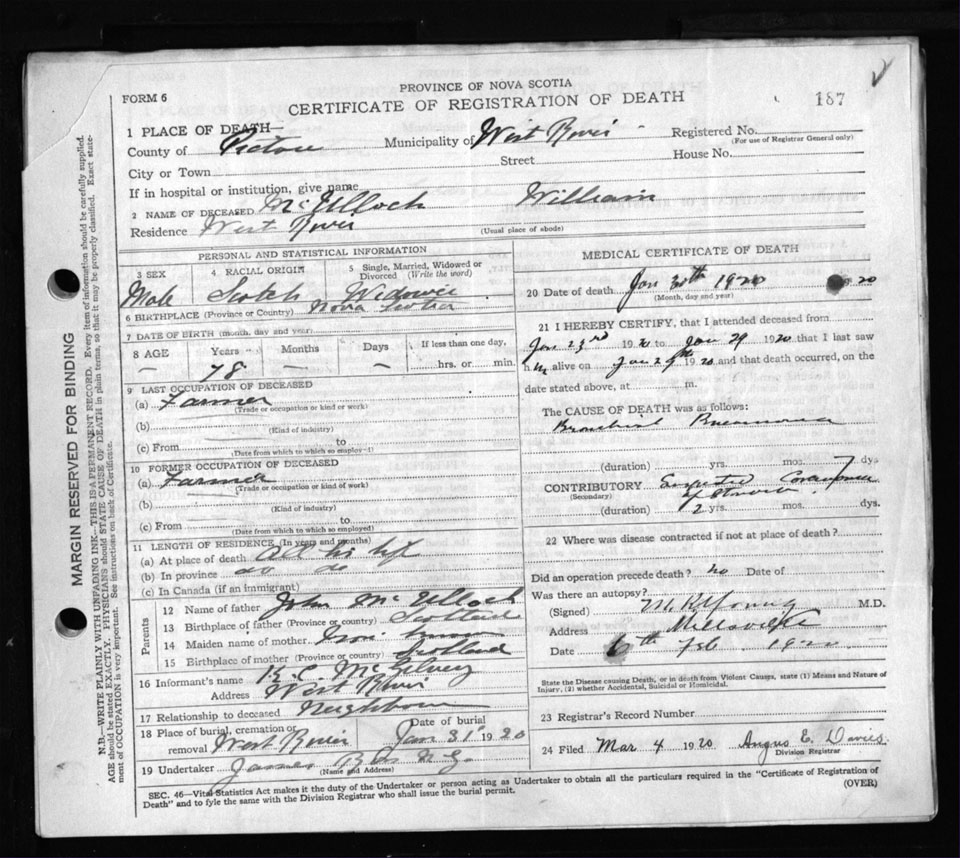 FORM 6
PROVINCE OF NOVA SCOTIA
CERTIFICATE OF REGISTRATION OF DEATH
187
1 PLACE OF DEATH—
County of Pictou Municipality of West River Registered No.
(For use of Registrar General only)
City or Town Street House No.
If in hospital or institution, give name
2 NAME OF DECEASED McUlloch William
Residence West River (Usual place of abode)
PERSONAL AND STATISTICAL INFORMATION
3 SEX 4 RACIAL ORIGIN 5 Single, Married, Widowed or Divorced (Write the word)
Male Scotch
6 BIRTHPLACE (Province or Country) Nova Scotia
7 DATE OF BIRTH (month, day and year)
8 AGE Years Months Days If less than one day,
— 78 — — hrs. or min.
9 LAST OCCUPATION OF DECEASED
(a) Farmer
(Trade or occupation or kind of work)
(b)
(Kind of industry)
(c) From to
(Date from which to which so employed)
10 FORMER OCCUPATION OF DECEASED
(a) Farmer
(Trade or occupation or kind of work)
(b)
(Kind of industry)
(c) From to
(Date from which to which so employed)
11 LENGTH OF RESIDENCE (In years and months)
(a) At place of death All his life
(b) In province do do
(c) In Canada (if an immigrant)
Parents
12 Name of father John McUlloch
13 Birthplace of father (Province or country) Scotland
14 Maiden name of mother
15 Birthplace of mother (Province or country) Scotland
16 Informant's name
Address West River
17 Relationship to deceased Neighbour
18 Place of burial, cremation or removal West River Date of burial Jan 31 1920
19 Undertaker James
(Name and Address)
MEDICAL CERTIFICATE OF DEATH
20 Date of death Jan 30th 1920 20
(Month, day and year)
21 I HEREBY CERTIFY, that I attended deceased from
Jan 23rd 1920 to Jan 29 1920 that I last saw
him alive on Jan 29th 1920 and that death occurred, on the
date stated above, at m.
The CAUSE OF DEATH was as follows:
Bronchial Pneumonia
(duration) yrs. mos. 7 dys
CONTRIBUTORY
(Secondary) of Stomach
(duration) 2 yrs. mos. dys.
22 Where was disease contracted if not at place of death?
Did an operation precede death? no Date of
Was there an autopsy?
(Signed) Young M.D.
Address Millsville
Date 6th Feb. 1920
State the Disease causing Death, or in death from Violent Causes, state (1) Means and Nature of
Injury, (2) whether Accidental, Suicidal or Homicidal.
23 Registrar's Record Number
24 Filed Mar 4 1920 Angus E. Davies
Division Registrar
SEC. 46—Vital Statistics Act makes it the duty of the Undertaker or person acting as Undertaker to obtain all the particulars required in the "Certificate of Registration of
Death" and to fyle the same with the Division Registrar who shall issue the burial permit.
(OVER)
MARGIN RESERVED FOR BINDING
N.B.—WRITE PLAINLY WITH UNFADING INK—THIS IS A PERMANENT RECORD. Every item of information should be carefully supplied.
AGE should be stated EXACTLY. PHYSICIANS should STATE CAUSE OF DEATH in plain terms, so that it may be properly classified. Exact state-
ment of OCCUPATION is very important. See instructions on back of Certificate.